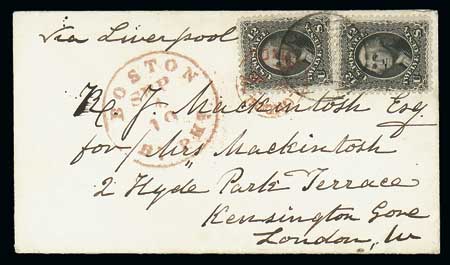 via Liverpool
BOSTON
SEP
10
R. J. Mackintosh Esq.
for Mrs Mackintosh
2 Hyde Park Terrace
Kensington Gore
London, W